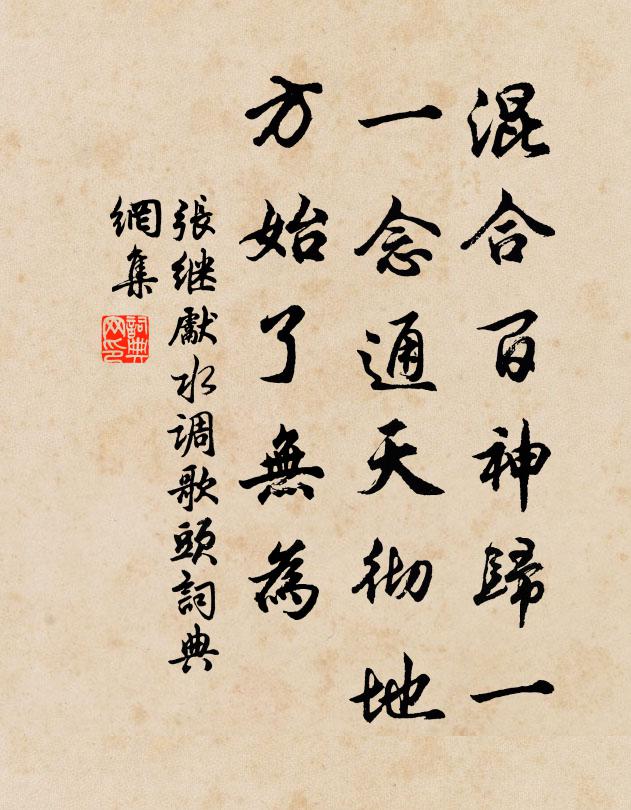 混合百神歸一
一念通天彻地
方始了無為
張继獻水调歌頭詞典
網集
詞典网印